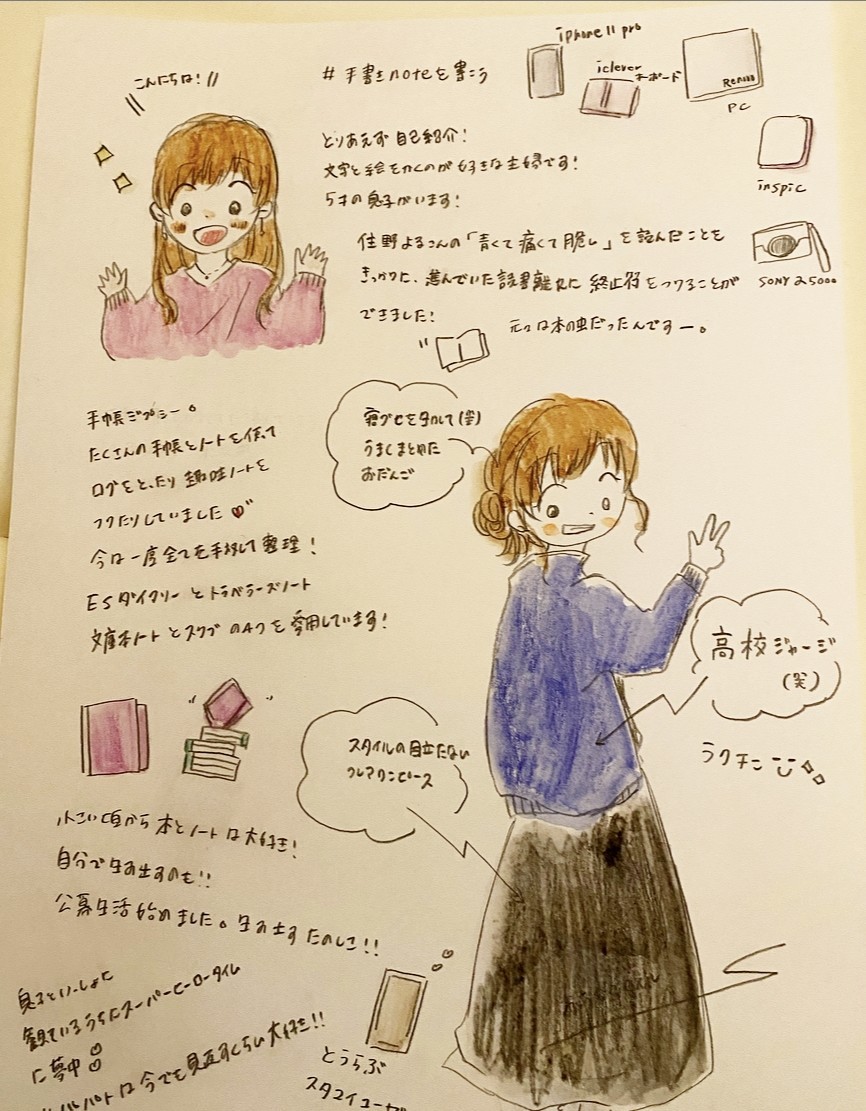 こんにちは!
#手書きnoteを書こう
iphone 11 pro
iclever
キーボード
PC
inspic
SONY α5000
とりあえず自己紹介!
文字と絵をかくのが好きな主婦です!
5才の息子がいます!
住野よるさんの「青くて痛くて脆い」を読んだことを
きっかけに、進んでいた読書離れに終止符をつけることが
できました!
元々は本の虫だったんですー。
手帳ジプシー。
たくさんの手帳とノートを使って
ログをとったり趣味ノートを
つくったりしていました
今は一度全てを手放して整理!
ESダイアリーとトラベラーズノート
文庫本ノートとスクラブの
を愛用しています!
寝グセを生かして(笑)
うまくまとめた
おだんご
高校ジャージ
(笑)
ラクチン
スタイルの目立たない
ワンピース
小さい頃から本とノートは大好き!
自分で生み出すのも!!
公募生活始めました。生み出すたのしさ!!
息子といっしょに
観ているうちにスーパーヒーロータイム
に夢中
は今でも見返すくらい大好き!!
とうらぶ